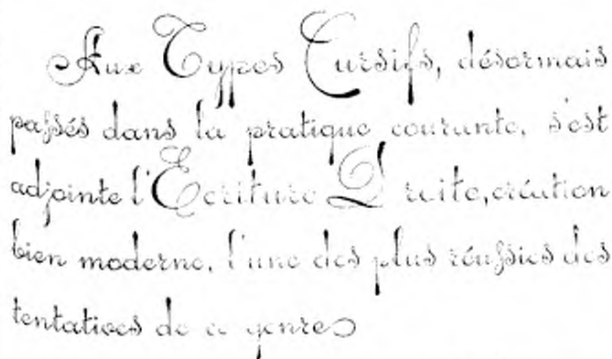 Aux Types Cursifs, désormais
passés dans la pratique courante, s'est
adjointe l'Ecriture Droite, création
bien moderne, l'une des plus réussies des
tentatives de ce genre